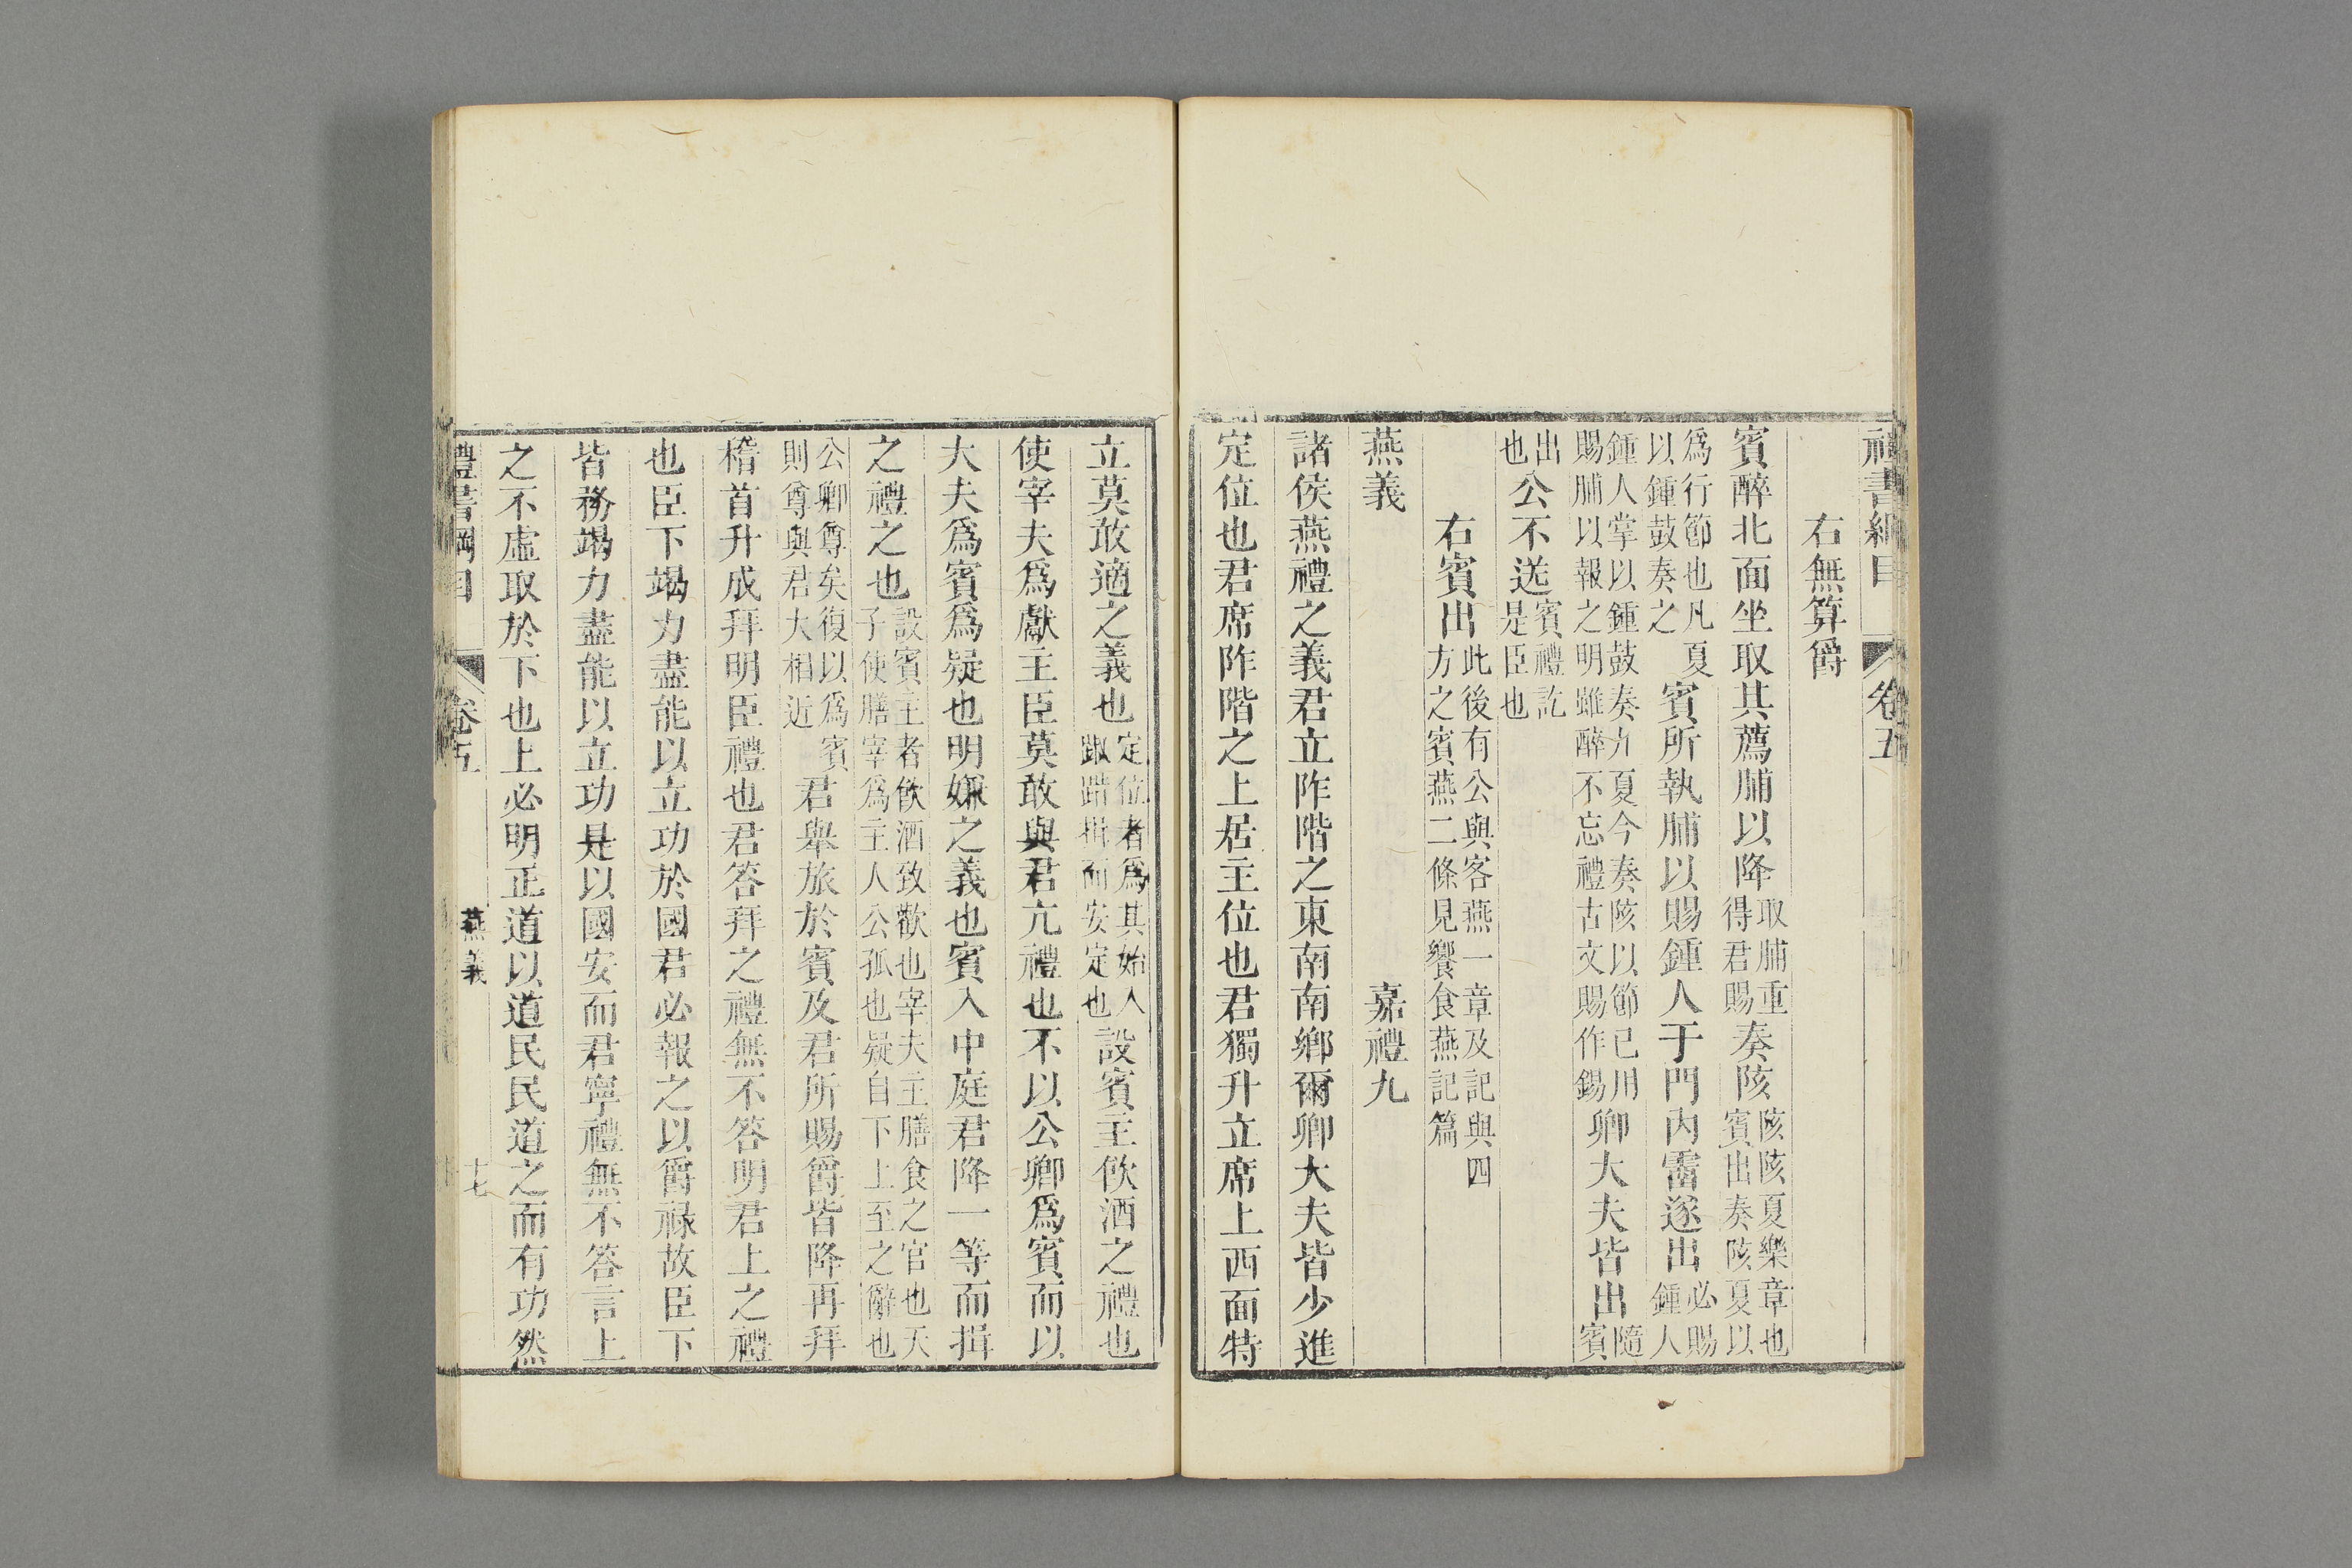 禮書綱目 卷五
右無算爵
賓醉北面坐取其薦脯以降取脯重得君賜奏陔陔陔夏樂章也賓出奏陔夏以
爲行節也凡夏以鍾鼓奏之賓所執脯以賜鍾人于門內霤遂出必賜鍾人
鍾人掌以鍾鼓奏九夏今奏陔以節已用賜脯以報之明雖醉不忘禮古文賜作錫卿大夫皆出隨賓
出也公不送賓禮訖是臣也
右賓出此後有公與客燕一章及記與四方之賓燕二條見饗食燕記篇
燕義 嘉禮九
諸侯燕禮之義君立阼階之東南南鄉爾卿大夫皆少進
定位也君席阼階之上居主位也君獨升立席上西面特
立莫敢適之義也定位者爲其始入踧踖揖而安定也設賓主飲酒之禮也
使宰夫爲獻主臣莫敢與君亢禮也不以公卿爲賓而以
大夫爲賓爲疑也明嫌之義也賓入中庭君降一等而揖
之禮之也設賓主者飲酒致歡也宰夫主膳食之官也天子使膳宰爲主人公孤也疑自下上至之辭也
公卿尊矣復以爲賓則尊與君大相近君舉旅於賓及君所賜爵皆降再拜
稽首升成拜明臣禮也君答拜之禮無不答明君上之禮
也臣下竭力盡能以立功於國君必報之以爵祿故臣下
皆務竭力盡能以立功是以國安而君寧禮無不答言上
之不虛取於下也上必明正道以道民民道之而有功然
禮書綱目 卷五 燕義 十七